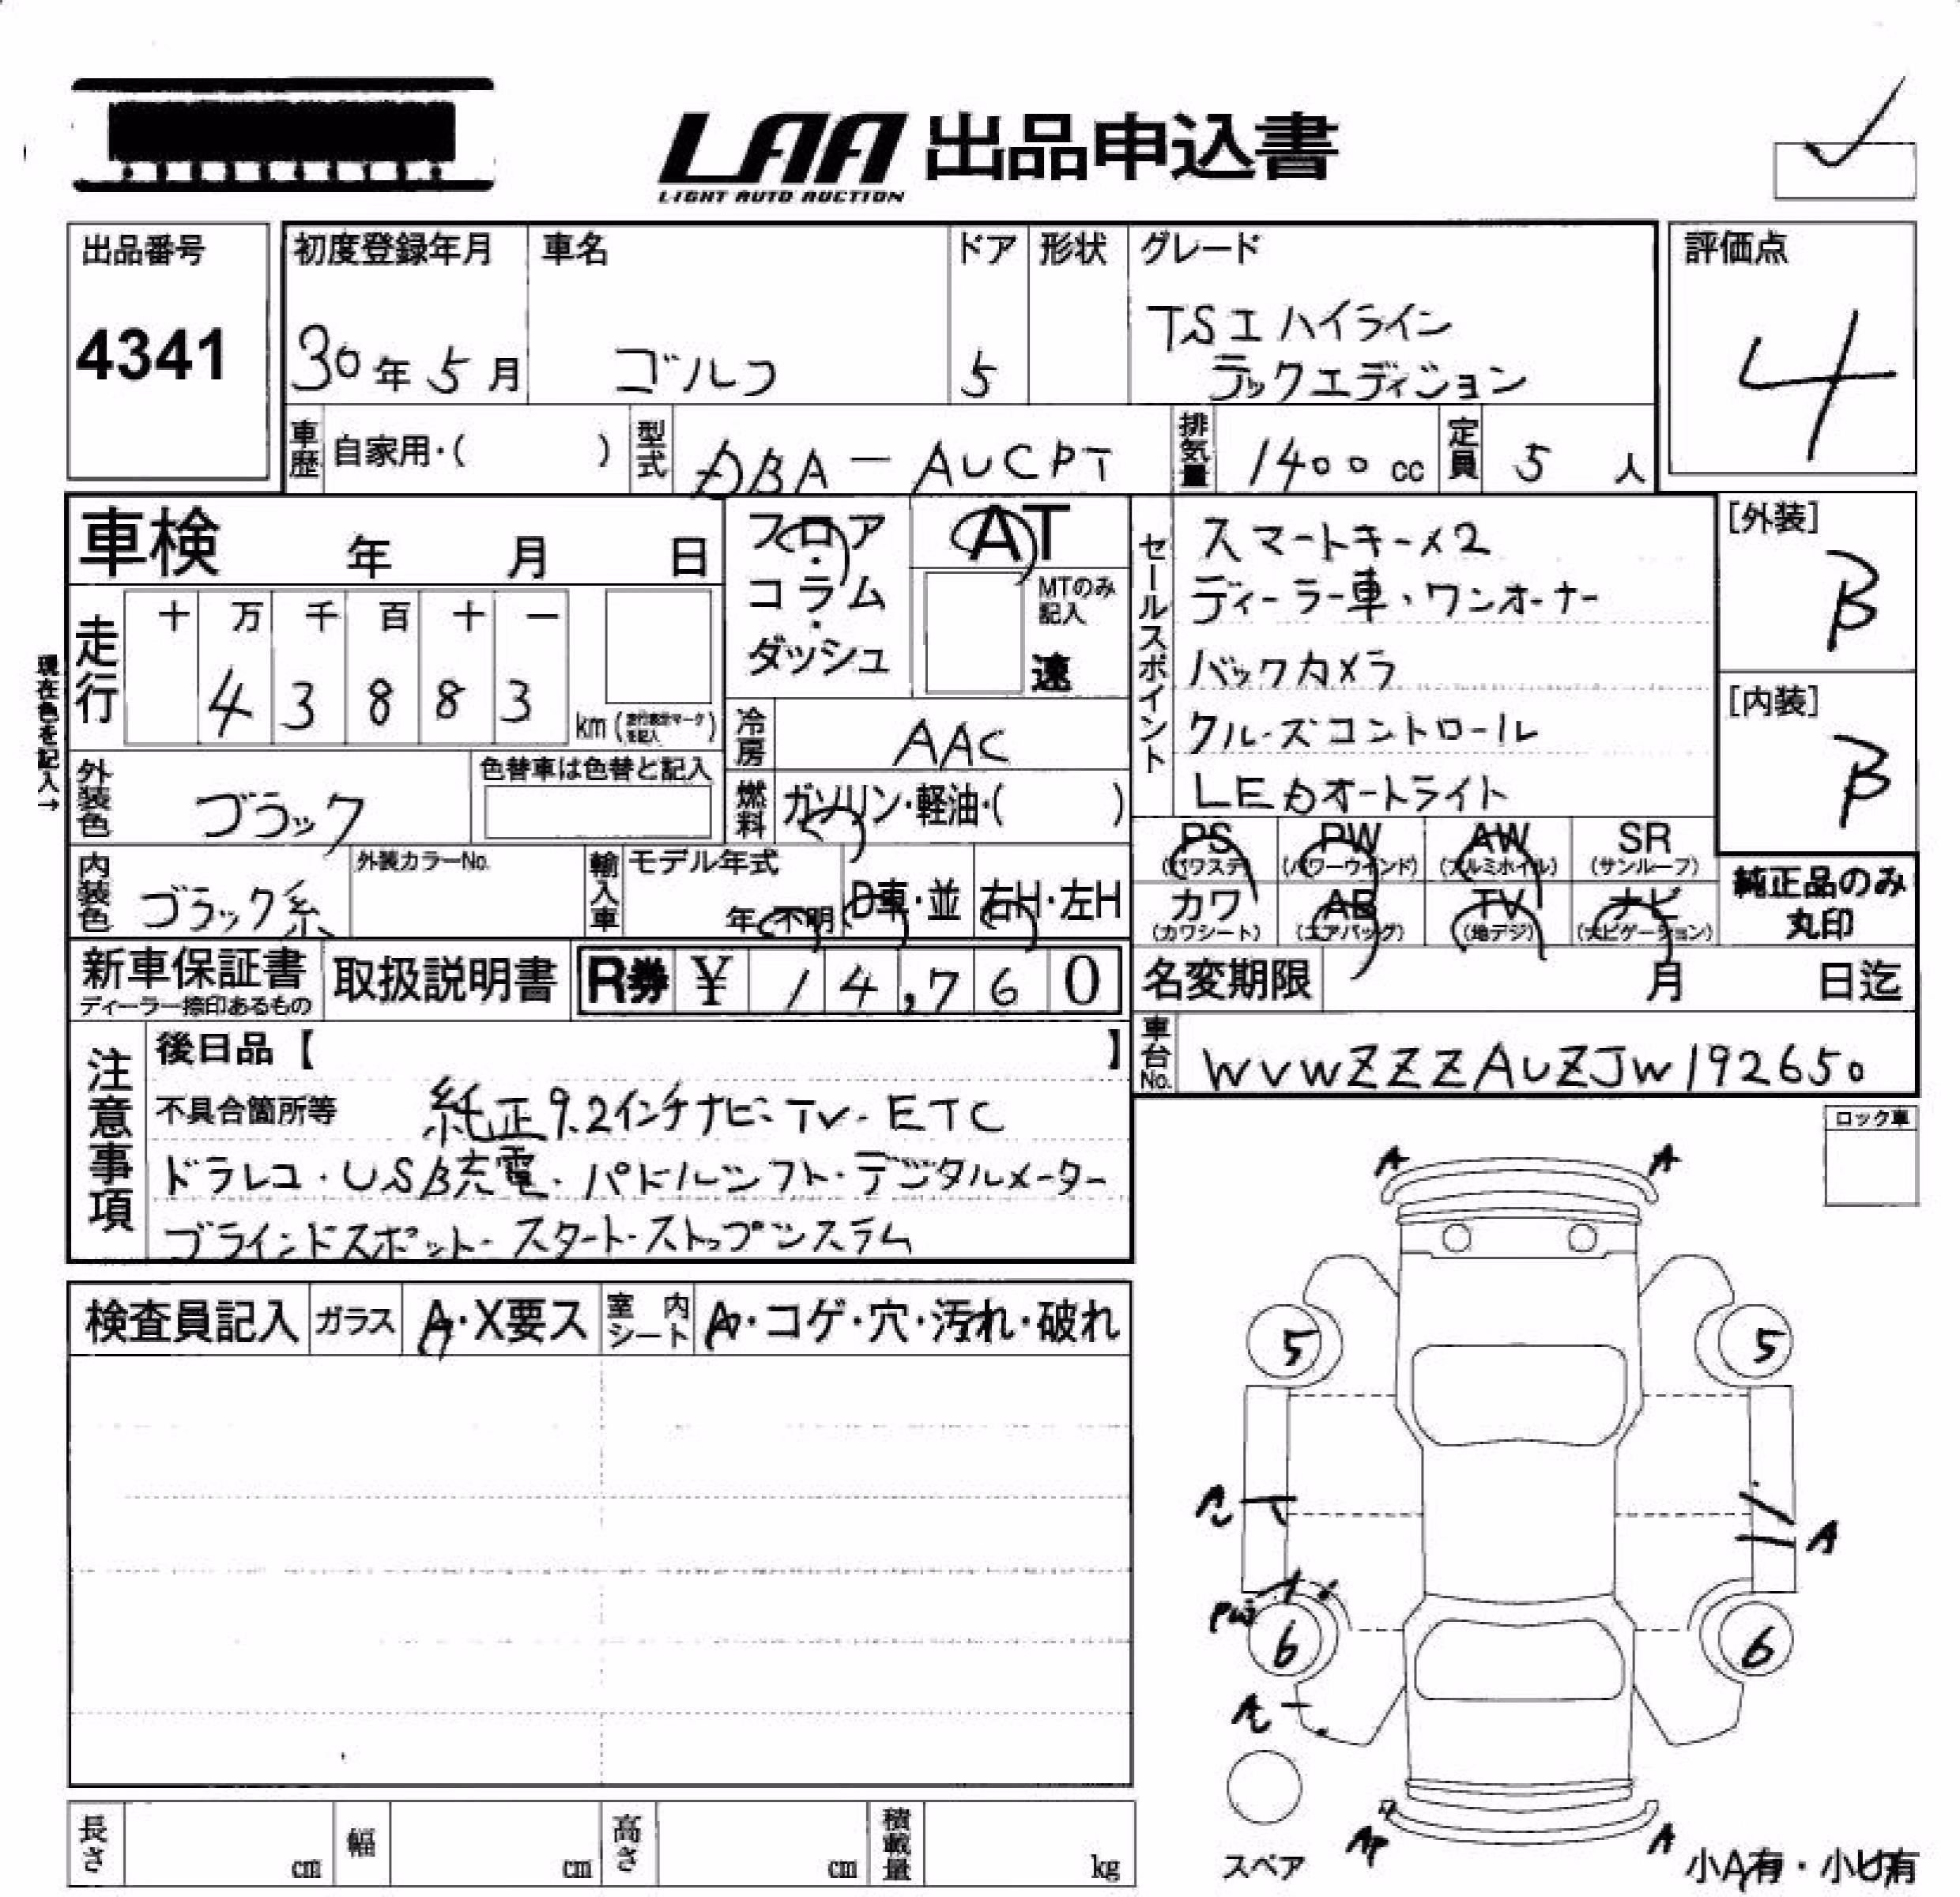 LAA 出品申込書
LIGHT AUTO AUCTION
出品番号
4341
初度登録年月
30年 5月
車名
ゴルフ
ドア
5
形状
グレード
TSI ハイライン
テックエディション
評価点
4
車歴 自家用・( )
型式 DBA-AUCPT
排気量 1400 cc
定員 5 人
車検 年 月 日
フロア・コラム・ダッシュ
AT
MTのみ記入
速
セールスポイント
スマートキー×2
ディーラー車・ワンオーナー
バックカメラ
クルーズコントロール
LEDオートライト
[外装]
B
[内装]
B
現在色を記入→
走行
十 万 千 百 十 一
4 3 8 8 3
km
冷房 AAC
外装色 ブラック
色替車は色替と記入
燃料 ガソリン・軽油・( )
内装色 ブラック系
外装カラーNo.
輸入車
モデル年式
年・不明
D車・並
右H・左H
PS (パワステ)
PW (パワーウインド)
AW (アルミホイル)
SR (サンルーフ)
カワ (カワシート)
AB (エアバッグ)
TV (地デジ)
ナビ (ナビゲーション)
純正品のみ
丸印
新車保証書
ディーラー捺印あるもの
取扱説明書
R券 ¥ 14,760
名変期限 月 日迄
車台No. WVWZZZAUZJW192650
注意事項
後日品【 】
不具合箇所等 純正9.2インチナビ・TV・ETC
ドラレコ・USB充電・パドルシフト・デジタルメーター
ブラインドスポット・スタート・ストップシステム
ロック車
検査員記入
ガラス
A・X要ス
室内シート
A・コゲ・穴・汚れ・破れ
A A
5 5
A
PW
6 6
A
スペア
AP A
小A有・小U有
長さ cm
幅 cm
高さ cm
積載量 kg